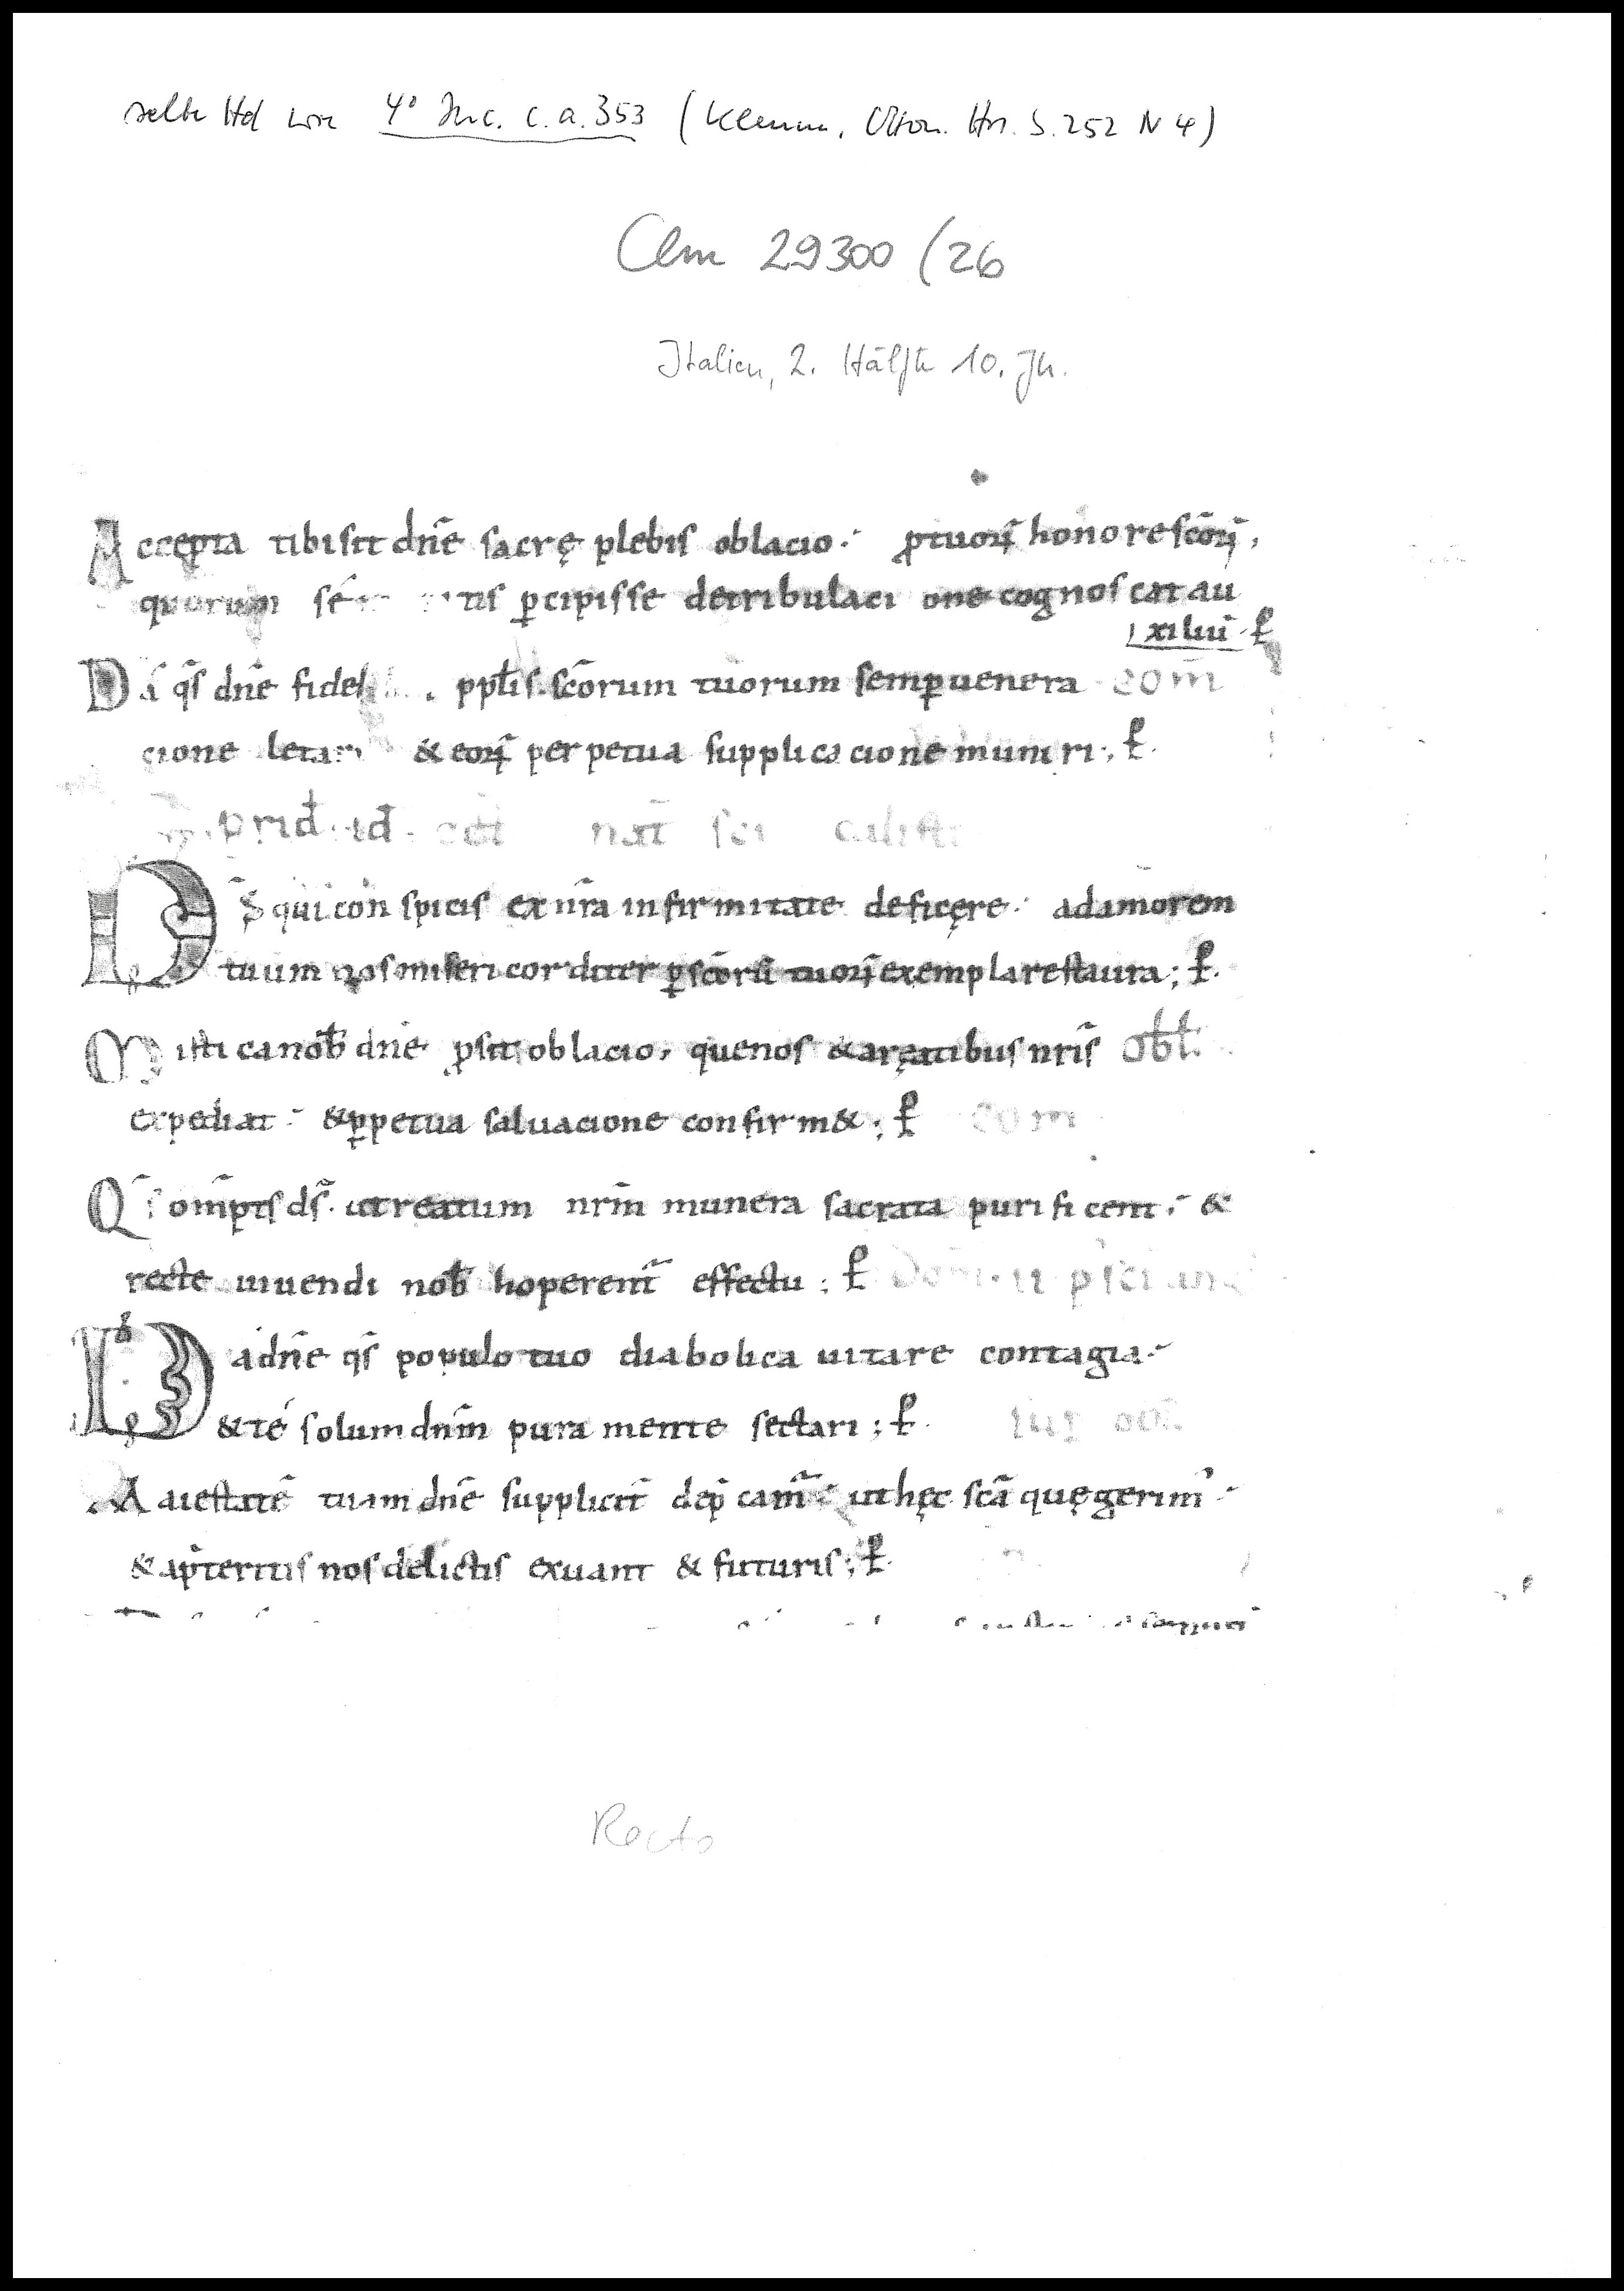 selbe Hd wie 4° Inc. c. a. 353 (Klemm, Otton. Hss. S. 252 N 4)
Clm 29300 (26
Italien, 2. Hälfte 10. Jh.
Accepta tibi sit dn̄e sacrę plebis oblacio·́ ꝓ tuoꝝ honore sc̄oꝝ,
quorum sé tis ꝑcipisse de tribulaci one cognoscat au
xiliū· ꝑ
Da q̄s dn̄e fidel ppłis sc̄orum tuorum semꝑ uenera com̄
cione letari & eoꝝ perpetua supplicacione muniri·, ꝑ·
prid· id· oct̄ nat̄ sci calisti
D̄s qui conspicis ex nr̄a infirmitate deficęre·́ ad amorem
tuum nos misericorditer ꝑ sc̄orū tuoꝝ exempla restaura; ꝑ·
Misti ca nob̄ dn̄e ꝓsit oblacio, que nos & a reatibus nr̄is obł·
expediat·́ & ꝑpetua saluacione confirm&; ꝑ com
Q̄s om̄pts ds̄· ut reatum nrm̄ munera sacrata purificent·́ &
recte uiuendi nob̄ hoperent̄ effectu; ꝑ Dom̄·
Da dn̄e q̄s populo tuo diabolica uitare contagia·́
& té solum dnm̄ pura mente sectari; ꝑ·
Maiestatē tuam dn̄e supplicit̄ dep̄cam̄·́ ut hęc sc̄a quę gerim᾽·́
& a p̄teritis nos delictis exuant & futuris; ꝑ·
Recto